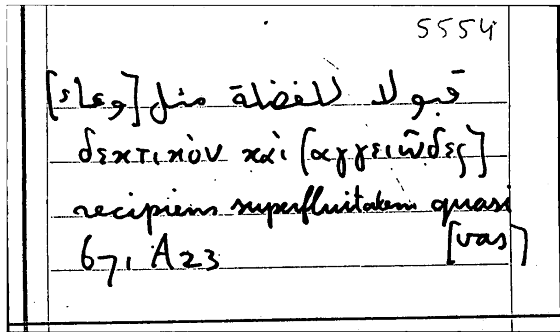 5554
قبولا للفضلة مثل [وعاء]
δεκτικὸν καὶ [αγγειῶδες]
recipiens superfluitatem quasi
[vas]
671 A23